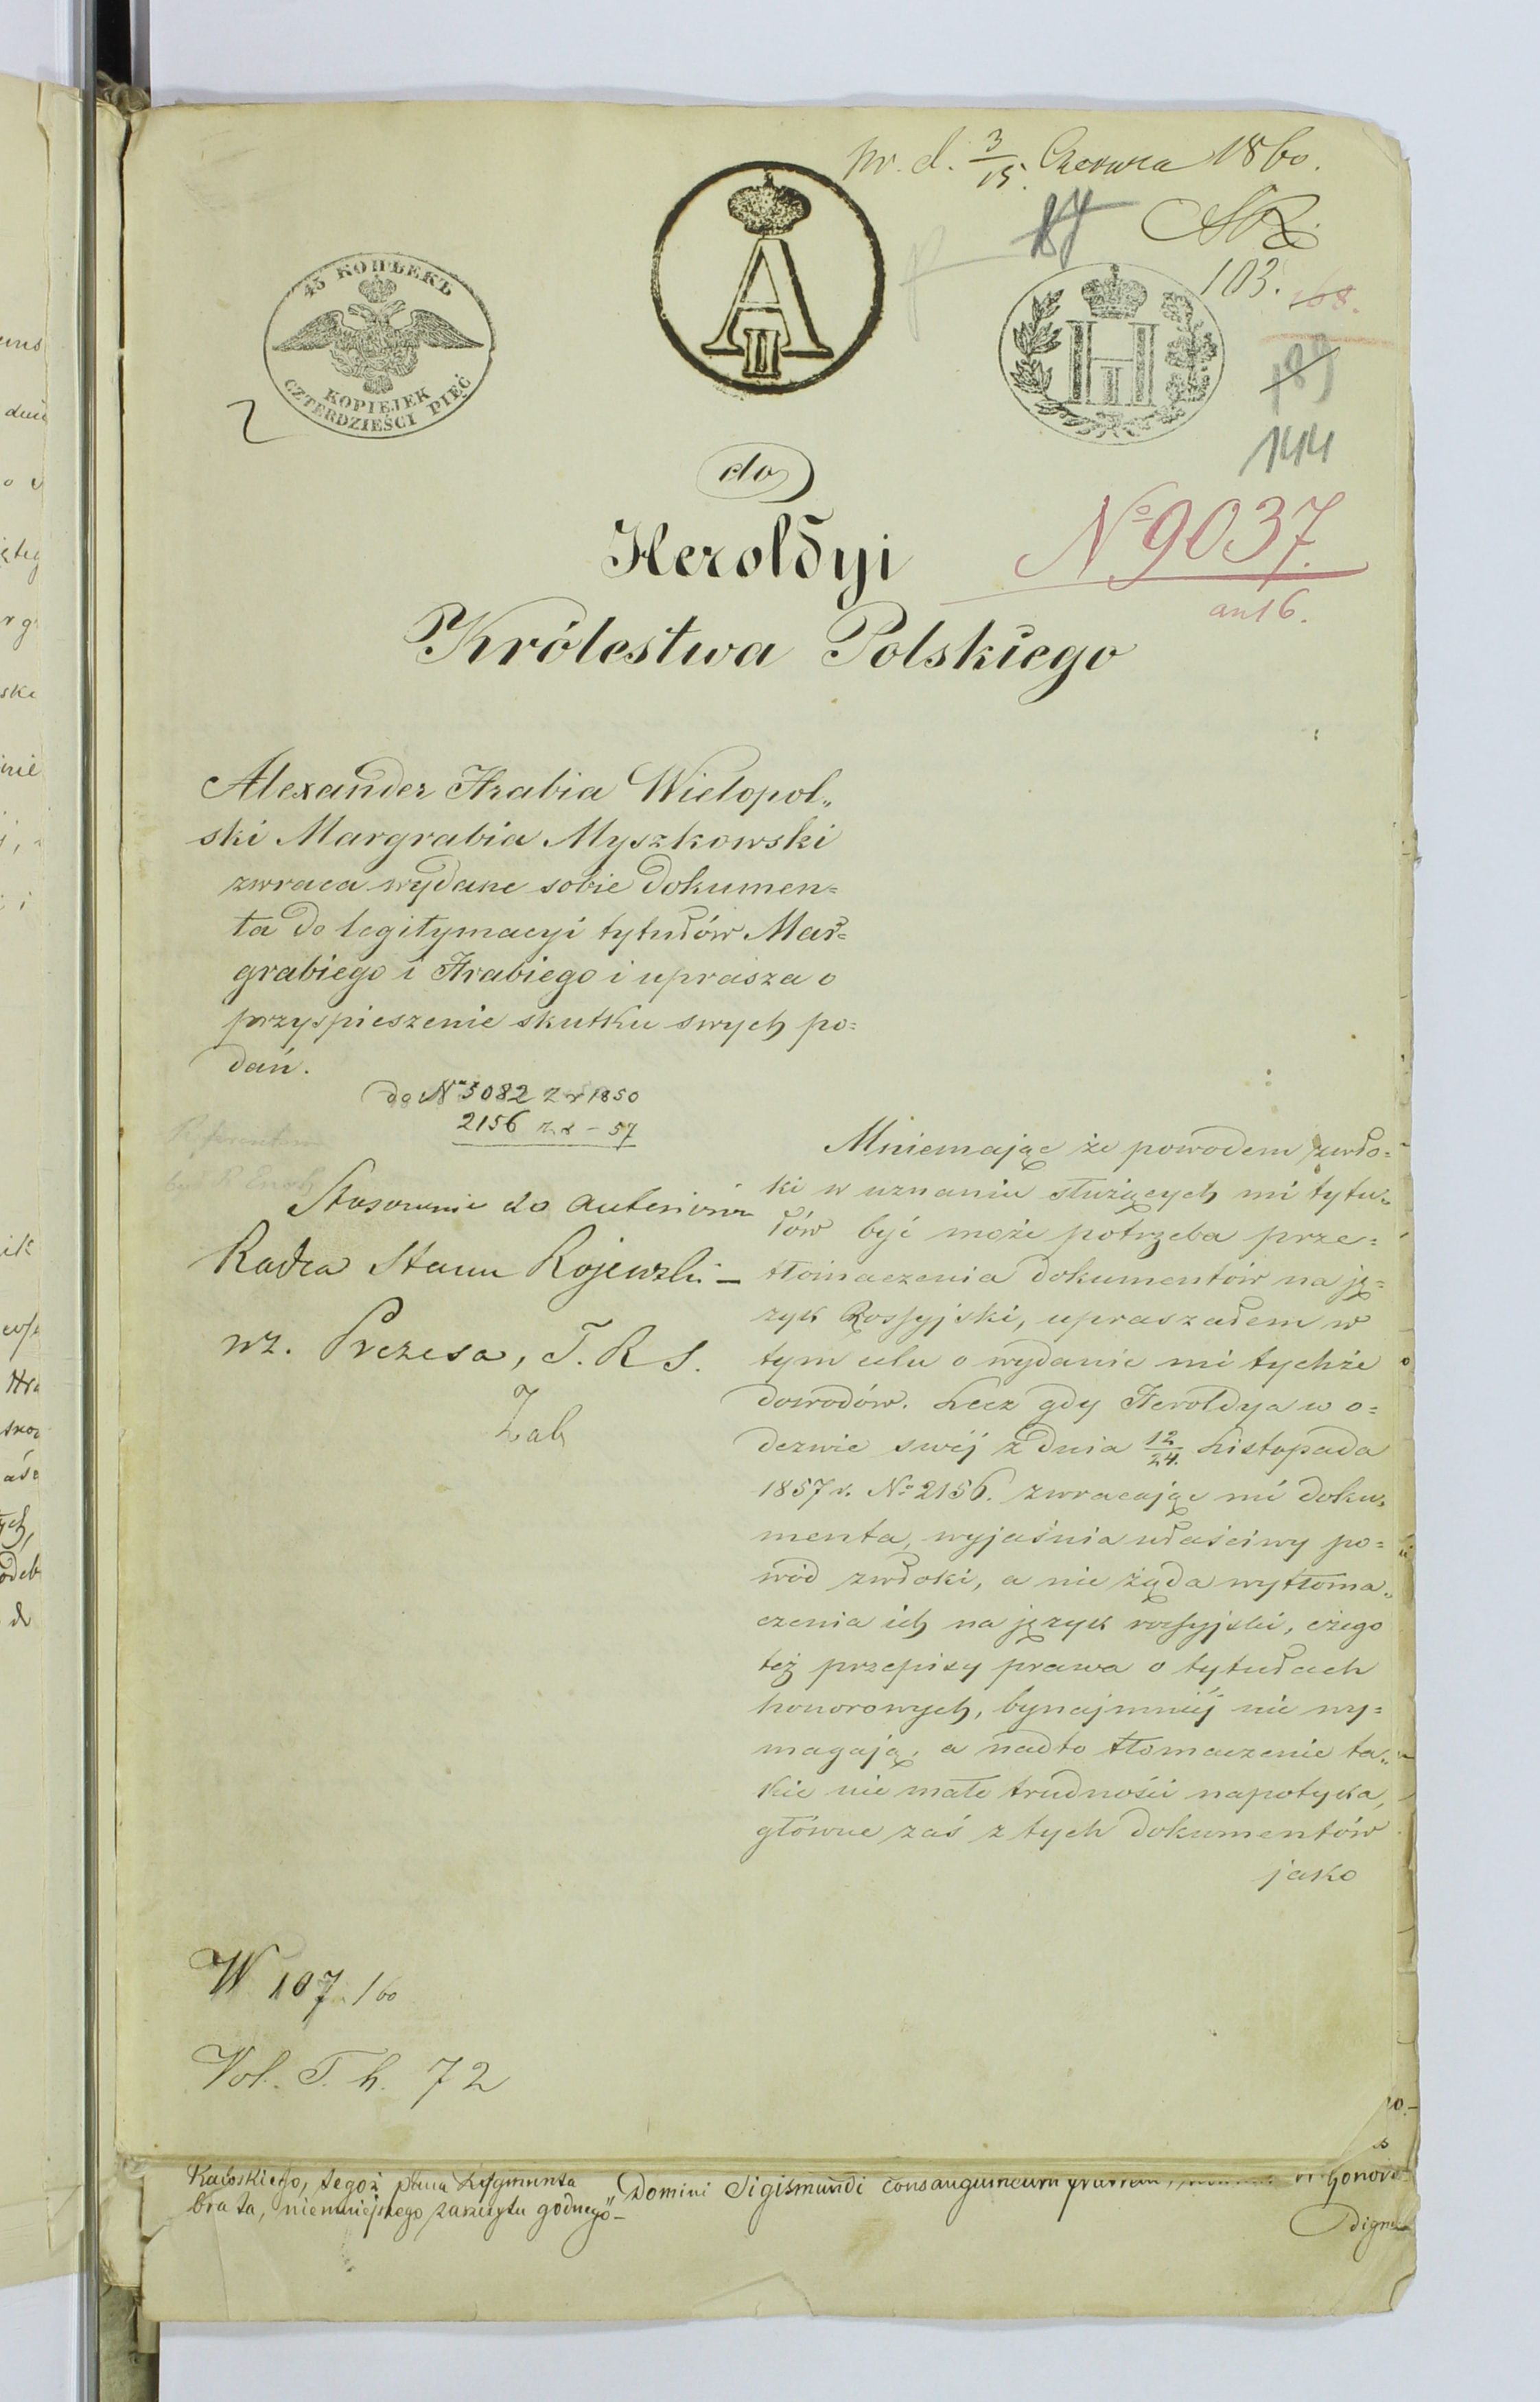 pr. d. 3/15. Czerwca 1860.
103.
168.
189
144
45 КОПѢЕКЪ
KOPIEJEK
CZTERDZIEŚCI PIĘĆ
A II
H I
do
Heroldyi
Królestwa Polskiego
№ 9037.
an 16.
Alexander Hrabia Wielopol„
ski Margrabia Myszkowski
zwraca wydane sobie dokumen=
ta do legitymacyi tytułów Mar=
grabiego i Hrabiego i uprasza o
przyspieszenie skutku swych po=
dań.
do № 3082 z r 1850
2156 z r – 57
Stosownie do anteriorów
Radca Stanu Rojewski –
wz. Prezesa, T. R S.
Zab
Mniemając że powodem zwło=
ki w uznaniu służących mi tytu„
łów być może potrzeba prze=
tłómaczenia dokumentów na ję=
zyk Rossyjski, upraszałem w
tym celu o wydanie mi tychże
dowodów. Lecz gdy Heroldya w o=
dezwie swéj z dnia 12/24. Listopada
1857 r. № 2156. zwracając mi doku„
menta, wyjaśnia właściwy po=
wód zwłoki, a nie żąda wytłoma„
czenia ich na język rossyjski, czego
też przepisy prawa o tytułach
honorowych, bynajmniéj nie wy=
magają, a nadto tłomaczenie ta„
kie nie małe trudności napotyka,
główne zaś z tych dokumentów
jako
W 107/60
Vol. T. h. 72
tegoż Pana Zygmunta
brata, niemniejszego zaszczytu godnego –
Domini Sigismundi consanguineum fratrem,
honore
Dignum